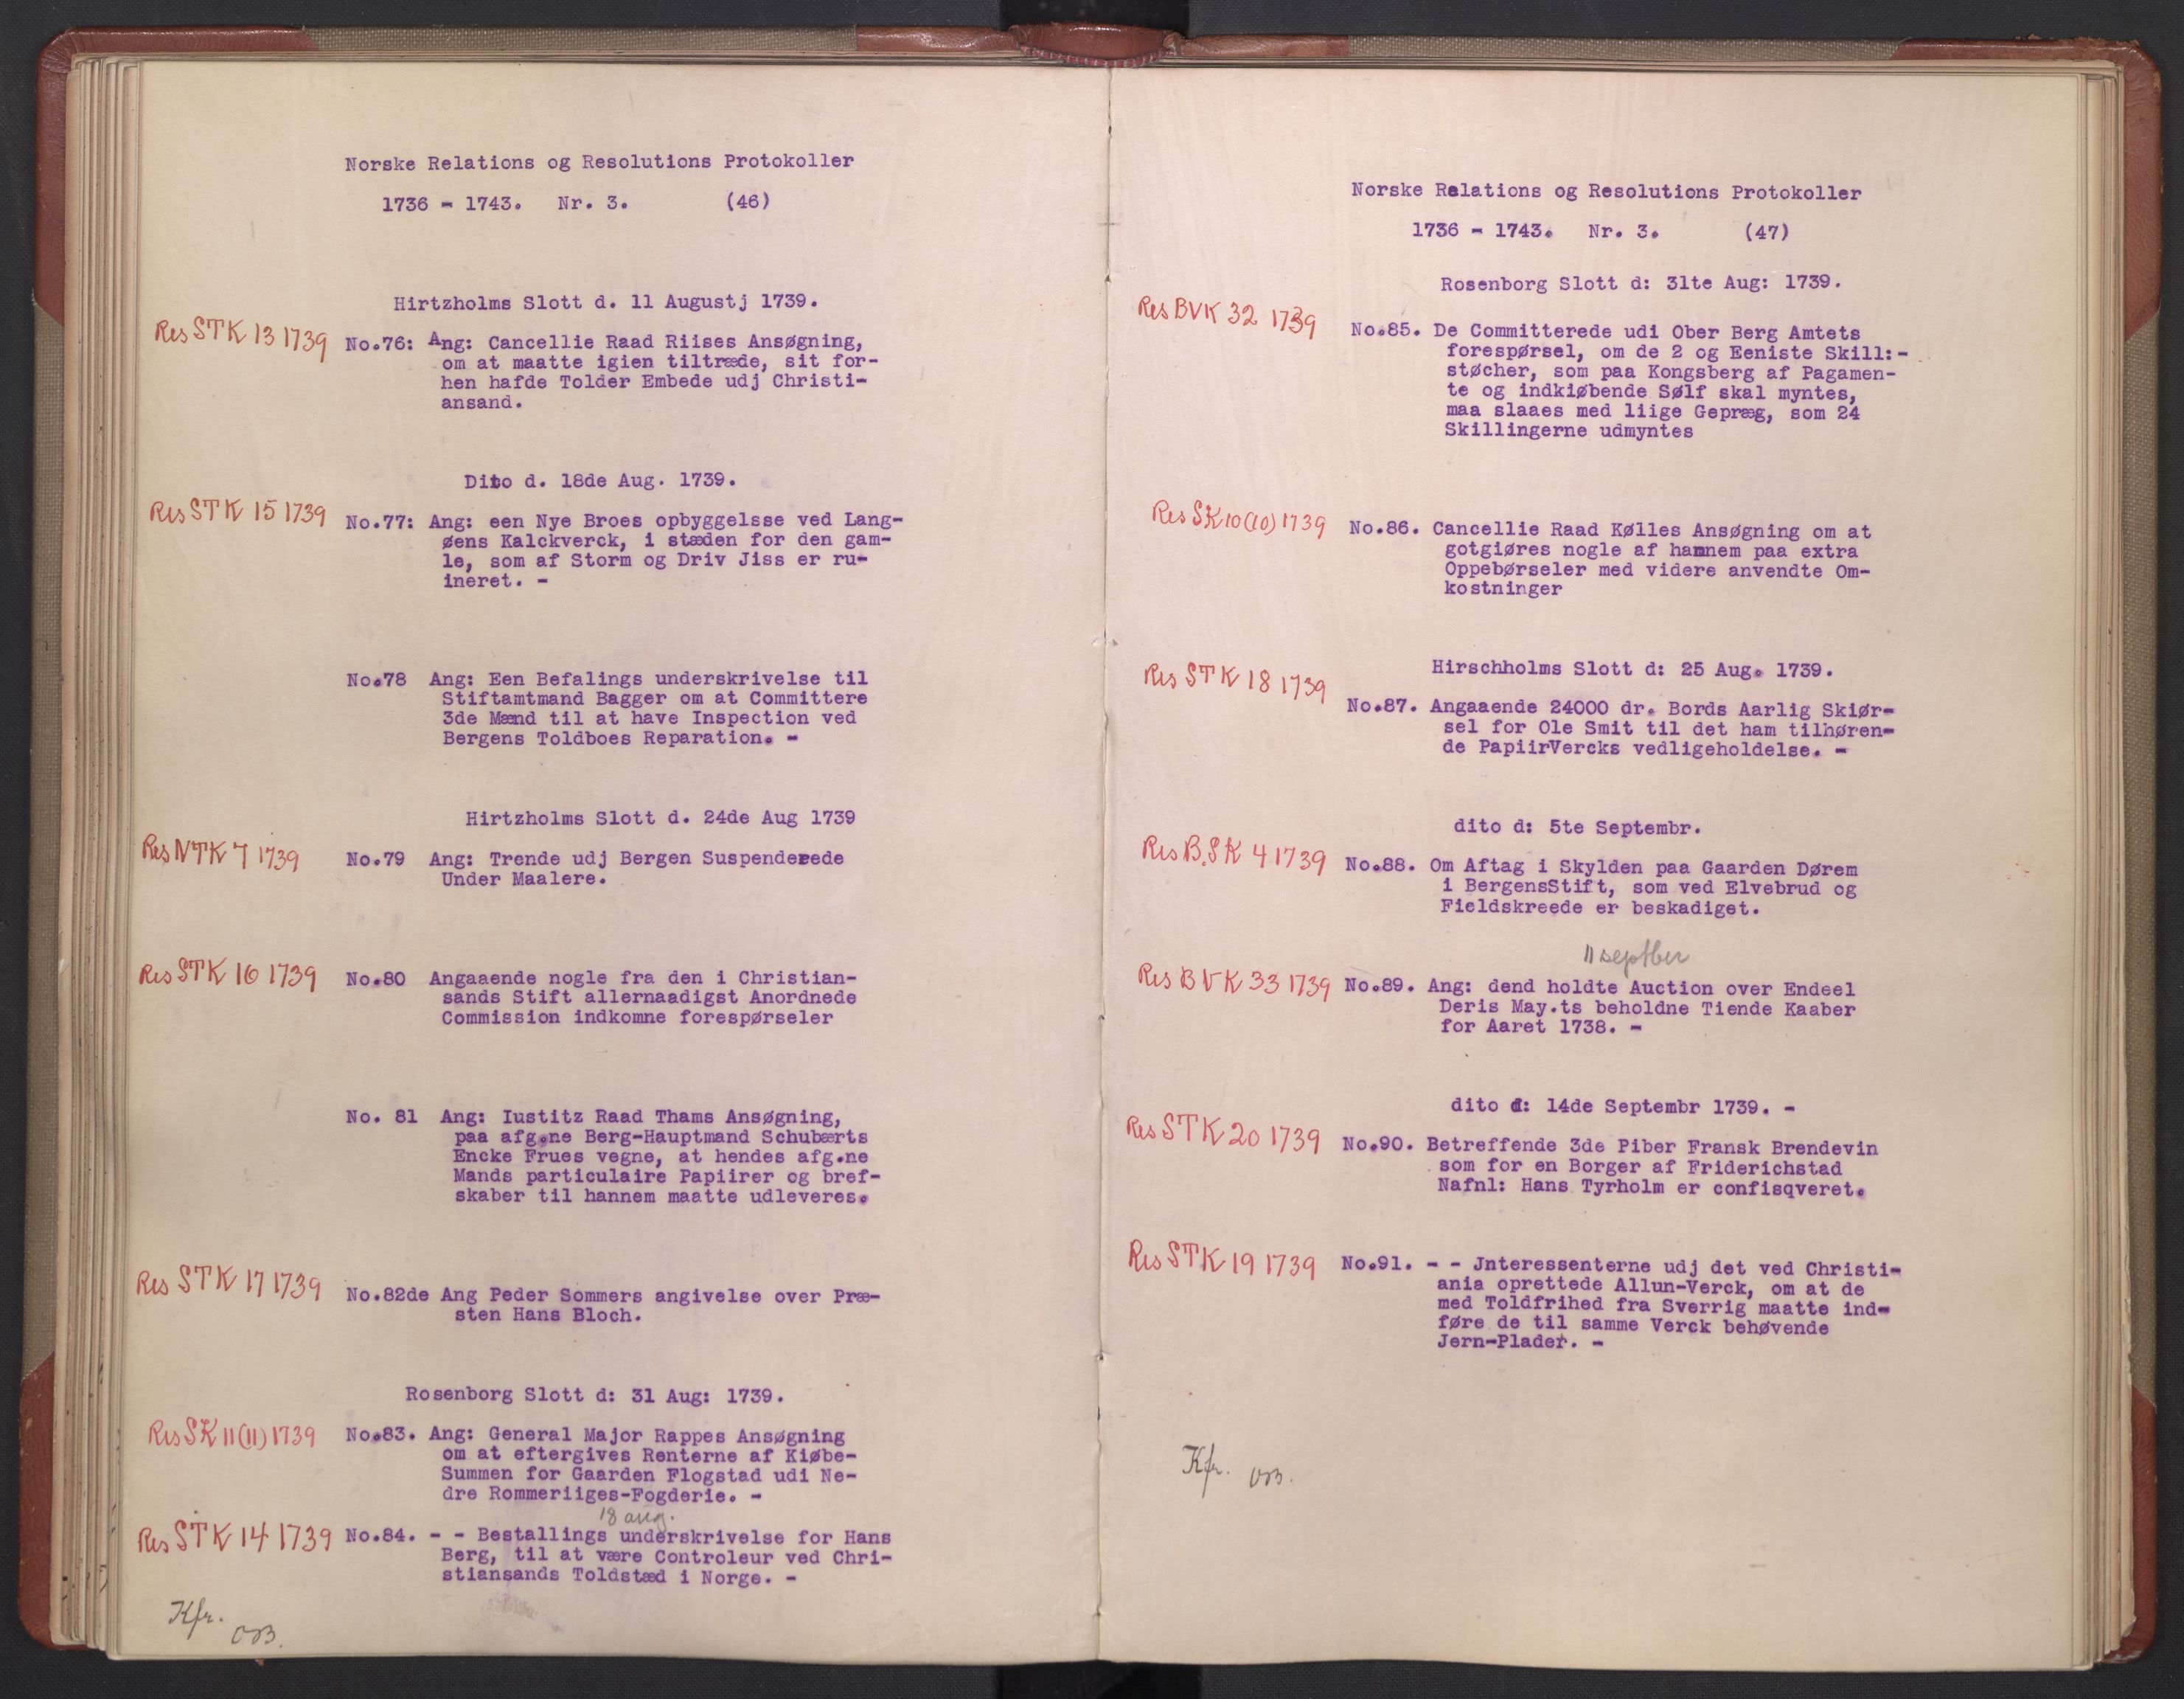 Norske Relations og Resolutions Protokoller
1736 - 1743. Nr. 3. (46)
Hirtzholms Slott d. 11 Augustj 1739.
Res STK 13 1739
No.76: Ang: Cancellie Raad Riises Ansøgning,
om at maatte igien tiltræde, sit for-
hen hafde Tolder Embede udj Christi-
ansand.
Dito d. 18de Aug. 1739.
Res STK 15 1739
No.77: Ang: een Nye Broes opbyggelsse ved Lang-
øens Kalckverck, i stæden for den gam-
le, som af Storm og Driv Jiss er ru-
ineret. -
No.78 Ang: Een Befalings underskrivelse til
Stiftamtmand Bagger om at Committere
3de Mænd til at have Inspection ved
Bergens Toldboes Reparation. -
Hirtzholms Slott d. 24de Aug 1739
Res NTK 7 1739
No.79 Ang: Trende udj Bergen Suspenderede
Under Maalere.
Res STK 16 1739
No.80 Angaaende nogle fra den i Christian-
sands Stift allernaadigst Anordnede
Commission indkomne forespørseler
No. 81 Ang: Iustitz Raad Thams Ansøgning,
paa afg.ne Berg-Hauptmand Schubærts
Encke Frues vegne, at hendes afg.ne
Mands particulaire Papiirer og bref-
skaber til hannem maatte udleveres.
Res STK 17 1739
No.82de Ang Peder Sommers angivelse over Præ-
sten Hans Bloch.
Rosenborg Slott d: 31 Aug: 1739.
Res SK 11(11) 1739
No.83. Ang: General Major Rappes Ansøgning
om at eftergives Renterne af Kiøbe-
Summen for Gaarden Flogstad udi Ne-
dre Rommeriiges-Fogderie. -
18 aug.
Res STK 14 1739
No.84. - - Bestallings underskrivelse for Hans
Berg, til at være Controleur ved Chri-
stiansands Toldstæd i Norge. -
Kfr.
OB.
Norske Relations og Resolutions Protokoller
1736 - 1743. Nr. 3. (47)
Rosenborg Slott d: 31te Aug: 1739.
Res BVK 32 1739
No.85. De Committerede udi Ober Berg Amtets
forespørsel, om de 2 og Eeniste Skill:-
støcher, som paa Kongsberg af Pagamen-
te og indkiøbende Sølf skal myntes,
maa slaaes med liige Gepræg, som 24
Skillingerne udmyntes
Res SK 10(10) 1739
No.86. Cancellie Raad Kølles Ansøgning om at
gotgiøres nogle af hannem paa extra
Oppebørseler med videre anvendte Om-
kostninger
Hirschholms Slott d: 25 Aug. 1739.
Res STK 18 1739
No.87. Angaaende 24000 dr. Bords Aarlig Skiør-
sel for Ole Smit til det ham tilhøren-
de PapiirVercks vedligeholdelse. -
dito d: 5te Septembr.
Res B.SK 4 1739
No.88. Om Aftag i Skylden paa Gaarden Dørem
i BergensStift, som ved Elvebrud og
Fieldskreede er beskadiget.
11 septber
Res BVK 33 1739
No.89. Ang: dend holdte Auction over Endeel
Deris May.ts beholdne Tiende Kaaber
for Aaret 1738. -
dito d: 14de Septembr 1739. -
Res STK 20 1739
No.90. Betreffende 3de Piber Fransk Brendevin
som for en Borger af Friderichstad
Nafnl: Hans Tyrholm er confisqveret.
Res STK 19 1739
No.91. - - Jnteressenterne udj det ved Christi-
ania oprettede Allun-Verck, om at de
med Toldfrihed fra Sverrig maatte ind-
føre de til samme Verck behøvende
Jern-Plader. -
Kfr. OB.